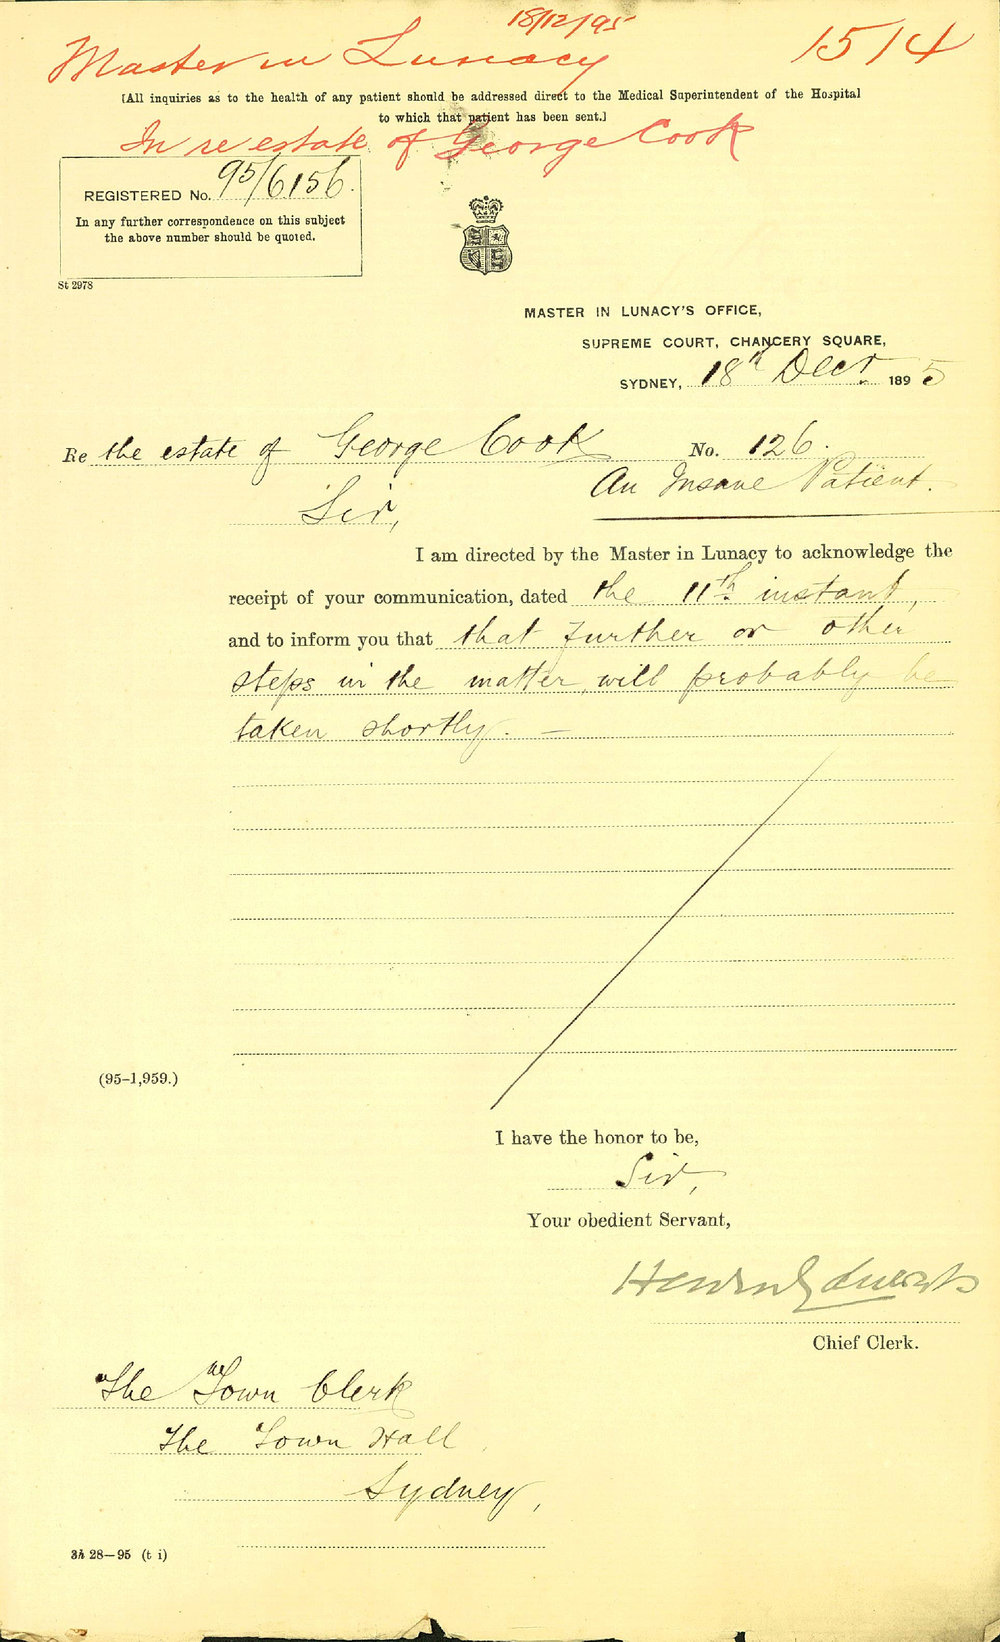 18/12/95
Master in Lunacy
1514
[All inquiries as to the health of any patient should be addressed direct to the Medical Superintendent of the Hospital
to which that patient has been sent.]
In re estate of George Cook
REGISTERED No. 95/6156.
In any further correspondence on this subject
the above number should be quoted.
St 2978
MASTER IN LUNACY'S OFFICE,
SUPREME COURT, CHANCERY SQUARE,
SYDNEY, 18th Decr. 1895
Re the estate of George Cook No. 126.
An Insane Patient.
Sir,
I am directed by the Master in Lunacy to acknowledge the
receipt of your communication, dated the 11th instant,
and to inform you that that further or other
steps in the matter, will probably be
taken shortly. —
(95-1,959.)
I have the honor to be,
Sir,
Your obedient Servant,
Chief Clerk.
The Town Clerk
The Town Hall
Sydney,
28—95 (t i)